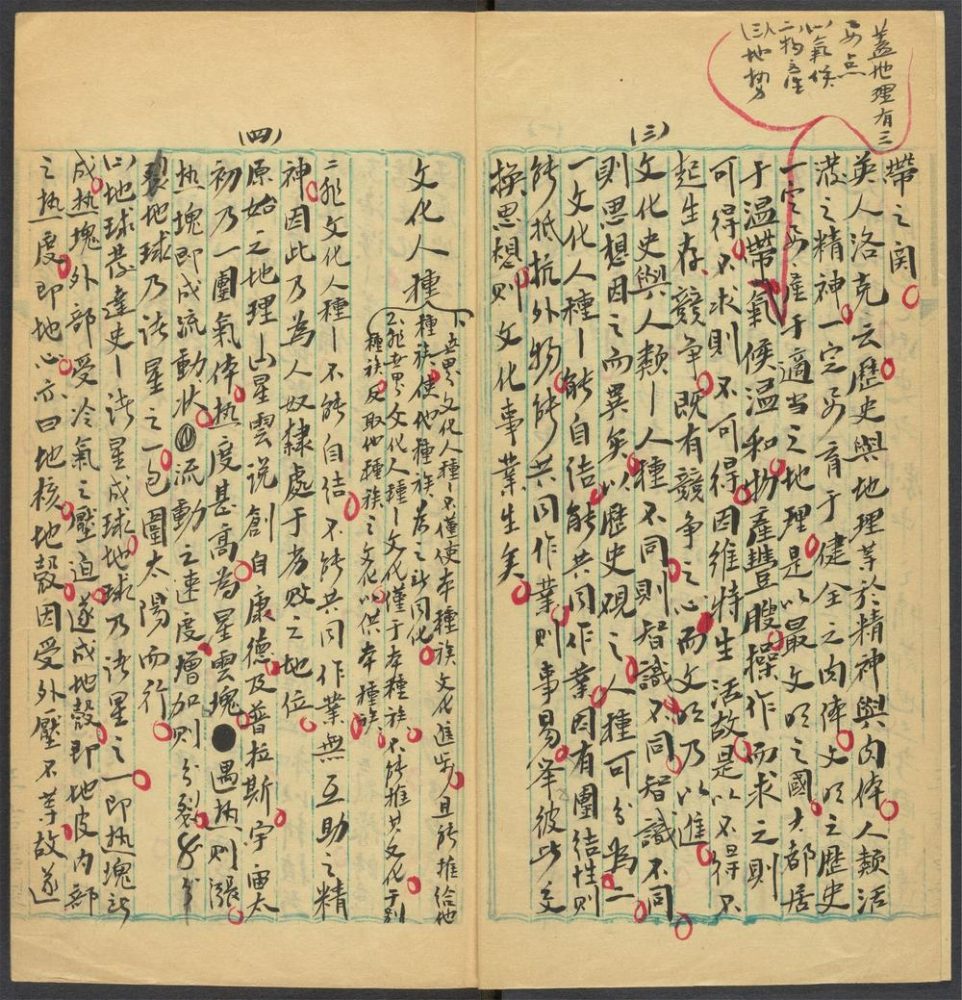 蓋地理有三
要点
(一)氣候
(二)物產
(三)地勢
(三)
帶之関
英人洛克云歷史與地理等於精神與肉体人類活
潑之精神一定要育于健全之肉体文明之歷史
一定要產于適当之地理是以最文明之國大都居
于温帶氣候温和物產豐腴操作而求之則
可得不求則不可得因維持生活故是以不得不
起生存競争既有競争之心而文明乃以進
文化史與人類—人種不同則智識不同智識不同
則思想因之而異矣以歷史観之人種可分為二
一文化人種—能自结能共同作業因有團结性則
能抵抗外物能共同作業則事易举彼此交
換思想則文化事業生矣
(四)
文化人種
1.世界文化人種—不僅使本種族文化進步且能推给他
種族使他種族為之所同化
2.非世界文化人種—文化僅于本種族不能推其文化于别
種族反取他種族之文化以供本種族
二非文化人種—不能自结不能共同作業無互助之精
神因此乃為人奴隸處于劣败之地位
原始之地理—星雲说創自康德及普拉斯宇宙太
初乃一團氣体热度甚高為星雲塊遇热则漲
热塊即成流動状流動之速度增加则分裂
地球乃诸星之一包圍太陽而行
(二)地球發達史—诸星成球地球乃诸星之一即热塊所
成热塊外部受冷氣之壓迫遂成地殻即地皮内部
之热度即地心亦曰地核地殻因受外壓不等故遂